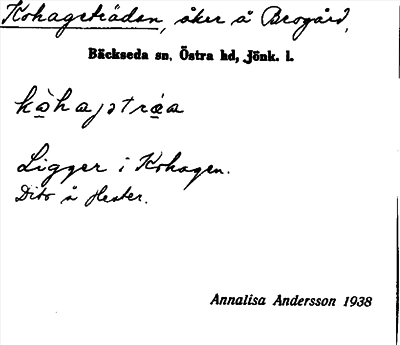 Kohagsträdan, åker å Brogård,
Bäckseda sn, Östra hd, Jönk. l.
Ligger i Kohagen.
Dito å Hester.
Annalisa Andersson 1938